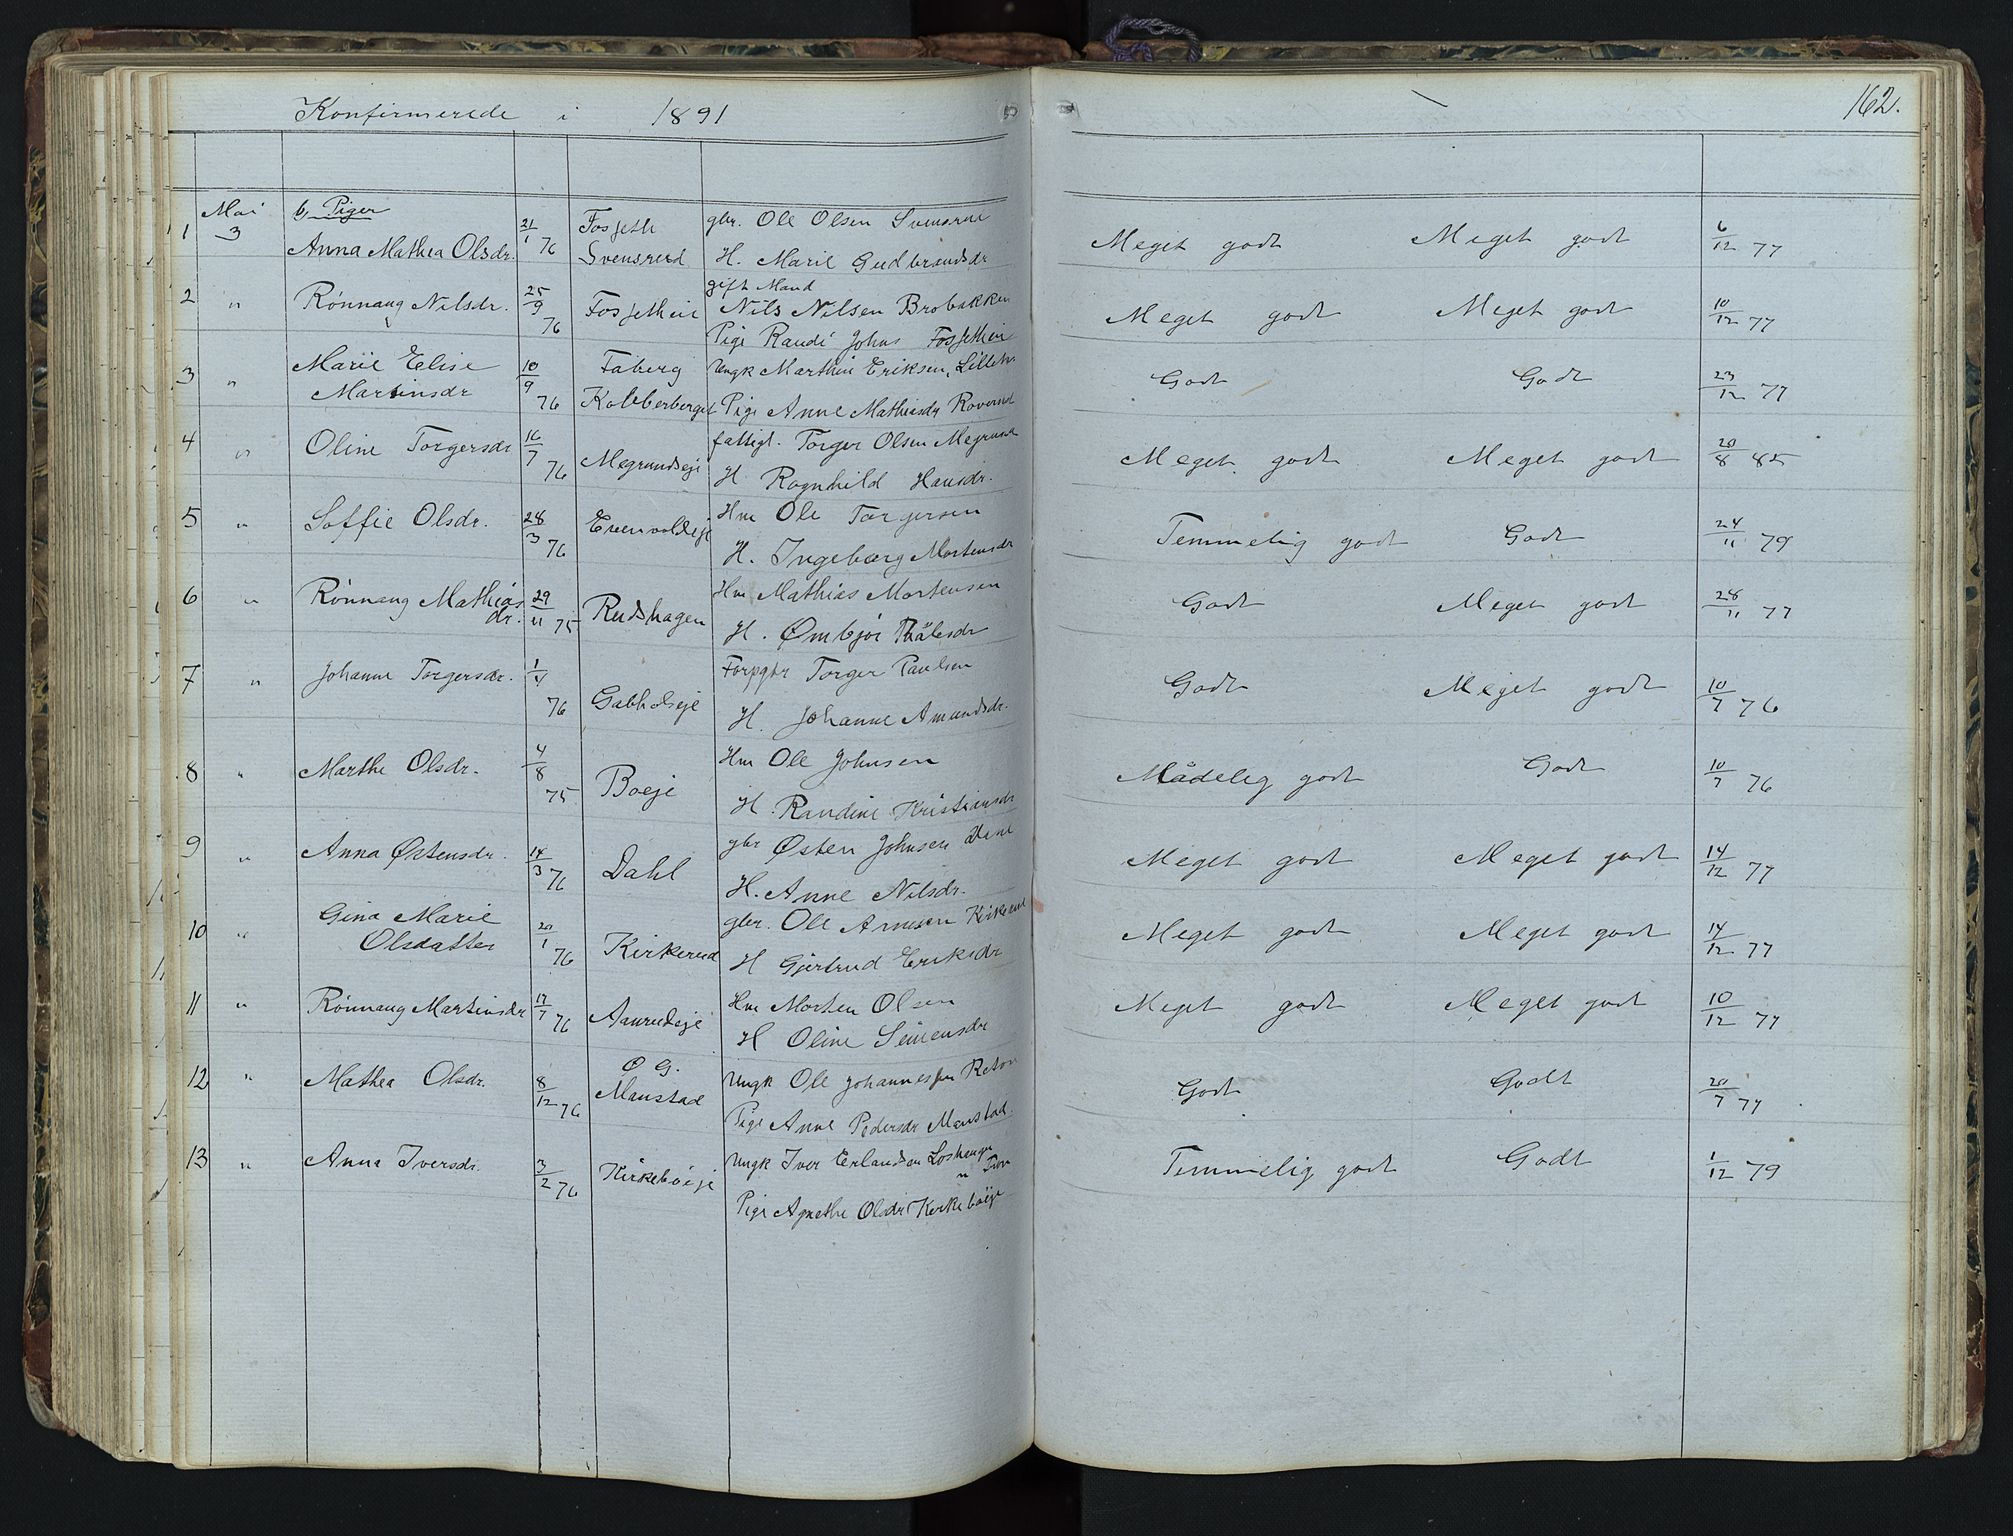 Konfirmerede i 1891
162.
Mai b, Piger
1 3 Anna Mathea Olsdr. 21/1 76 Fosseth Svensrud gbr. Ole Olsen Svensrud
H. Marie Gudbrandsdr Meget godt Meget godt 6/12 77
2 " Rønnaug Nilsdr. 25/9 76 Fossethei gift Mand Nils Nilsen Brobakken
Pige Randi Johns Fossethei Meget godt Meget godt 10/12 77
3 " Marie Elise Martinsdr 10/9 76 Faberg Kobberberget Ungk Marthin Eriksen, Lilleh.
Pige Anne Mathisdr Roverud Godt Godt 23/12 77
4 " Oline Torgersdr 16/7 76 Megrundseje fattigl. Torger Olsen Megrund
H Ragnhild Hansdr. Meget godt Meget godt 20/8 85
5 " Soffie Olsdr. 28/3 76 Evenvoldeje Hm Ole Torgersen
H. Ingeborg Mortensdr Temmelig godt Godt 24/11 79
6 " Rønnaug Mathias dr. 29/11 75 Rudshagen Hm Mathias Mortensen
H. Ømbjør Pålsdr Godt Meget godt 28/11 77
7 " Johanne Torgersdr. 1/4 76 Gabholseje Forpgbr Torger Paulsen
H. Johanne Amundsdr. Godt Meget godt 10/7 76
8 " Marthe Olsdr. 4/8 75 Boeje Hm Ole Johnsen
H. Randine Kristiansdr Mådelig godt Godt 10/7 76
9 " Anna Østensdr. 14/3 76 Dahl gbr Østen Johnsen
H. Anne Nilsdr. Meget godt Meget godt 14/12 77
10 " Gina Marie Olsdatter 20/1 76 Kirkerud gbr. Ole Arnesen Kirkerud
H Gjertrud Eriksdr Meget godt Meget godt 14/12 77
11 " Rønnaug Martinsdr 17/7 76 Aanrudeje Hm Morten Olsen
H Oline Simensdr Meget godt Meget godt 10/12 77
12 " Mathea Olsdr. 8/12 76 Ø G. Maustad Ungk Ole Johannessen
Pige Anne Pedersdr Maustad. Godt Godt 20/7 77
13 " Anna Iversdr. 3/2 76 Kirkebøeje Ungk Iver Erlandsen Loshaugen
Pige Agnethe Olsdr Kirkebøeje Temmelig godt Godt 1/12 79